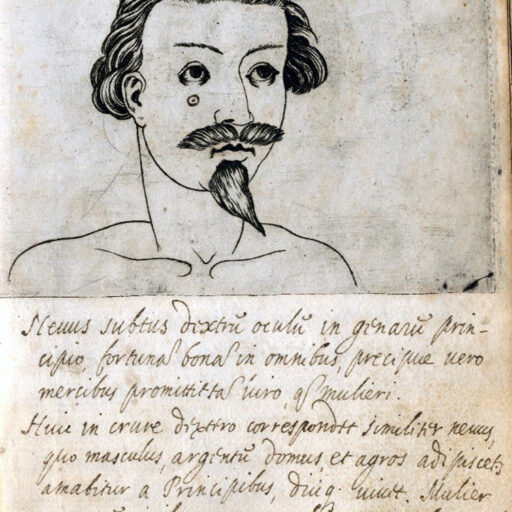 Nevus subtus dextrũ oculũ in genarũ prin-
cipio fortunã bonã in omnibus, precipue vero
mercibus promittit tã viro, q̃ mulieri.
Huic in crure dextro correspondet similiter nevus,
quo masculus, argentũ, domus, et agros adipiscet,
amabitur a Principibus, diuq. viuet. Mulier